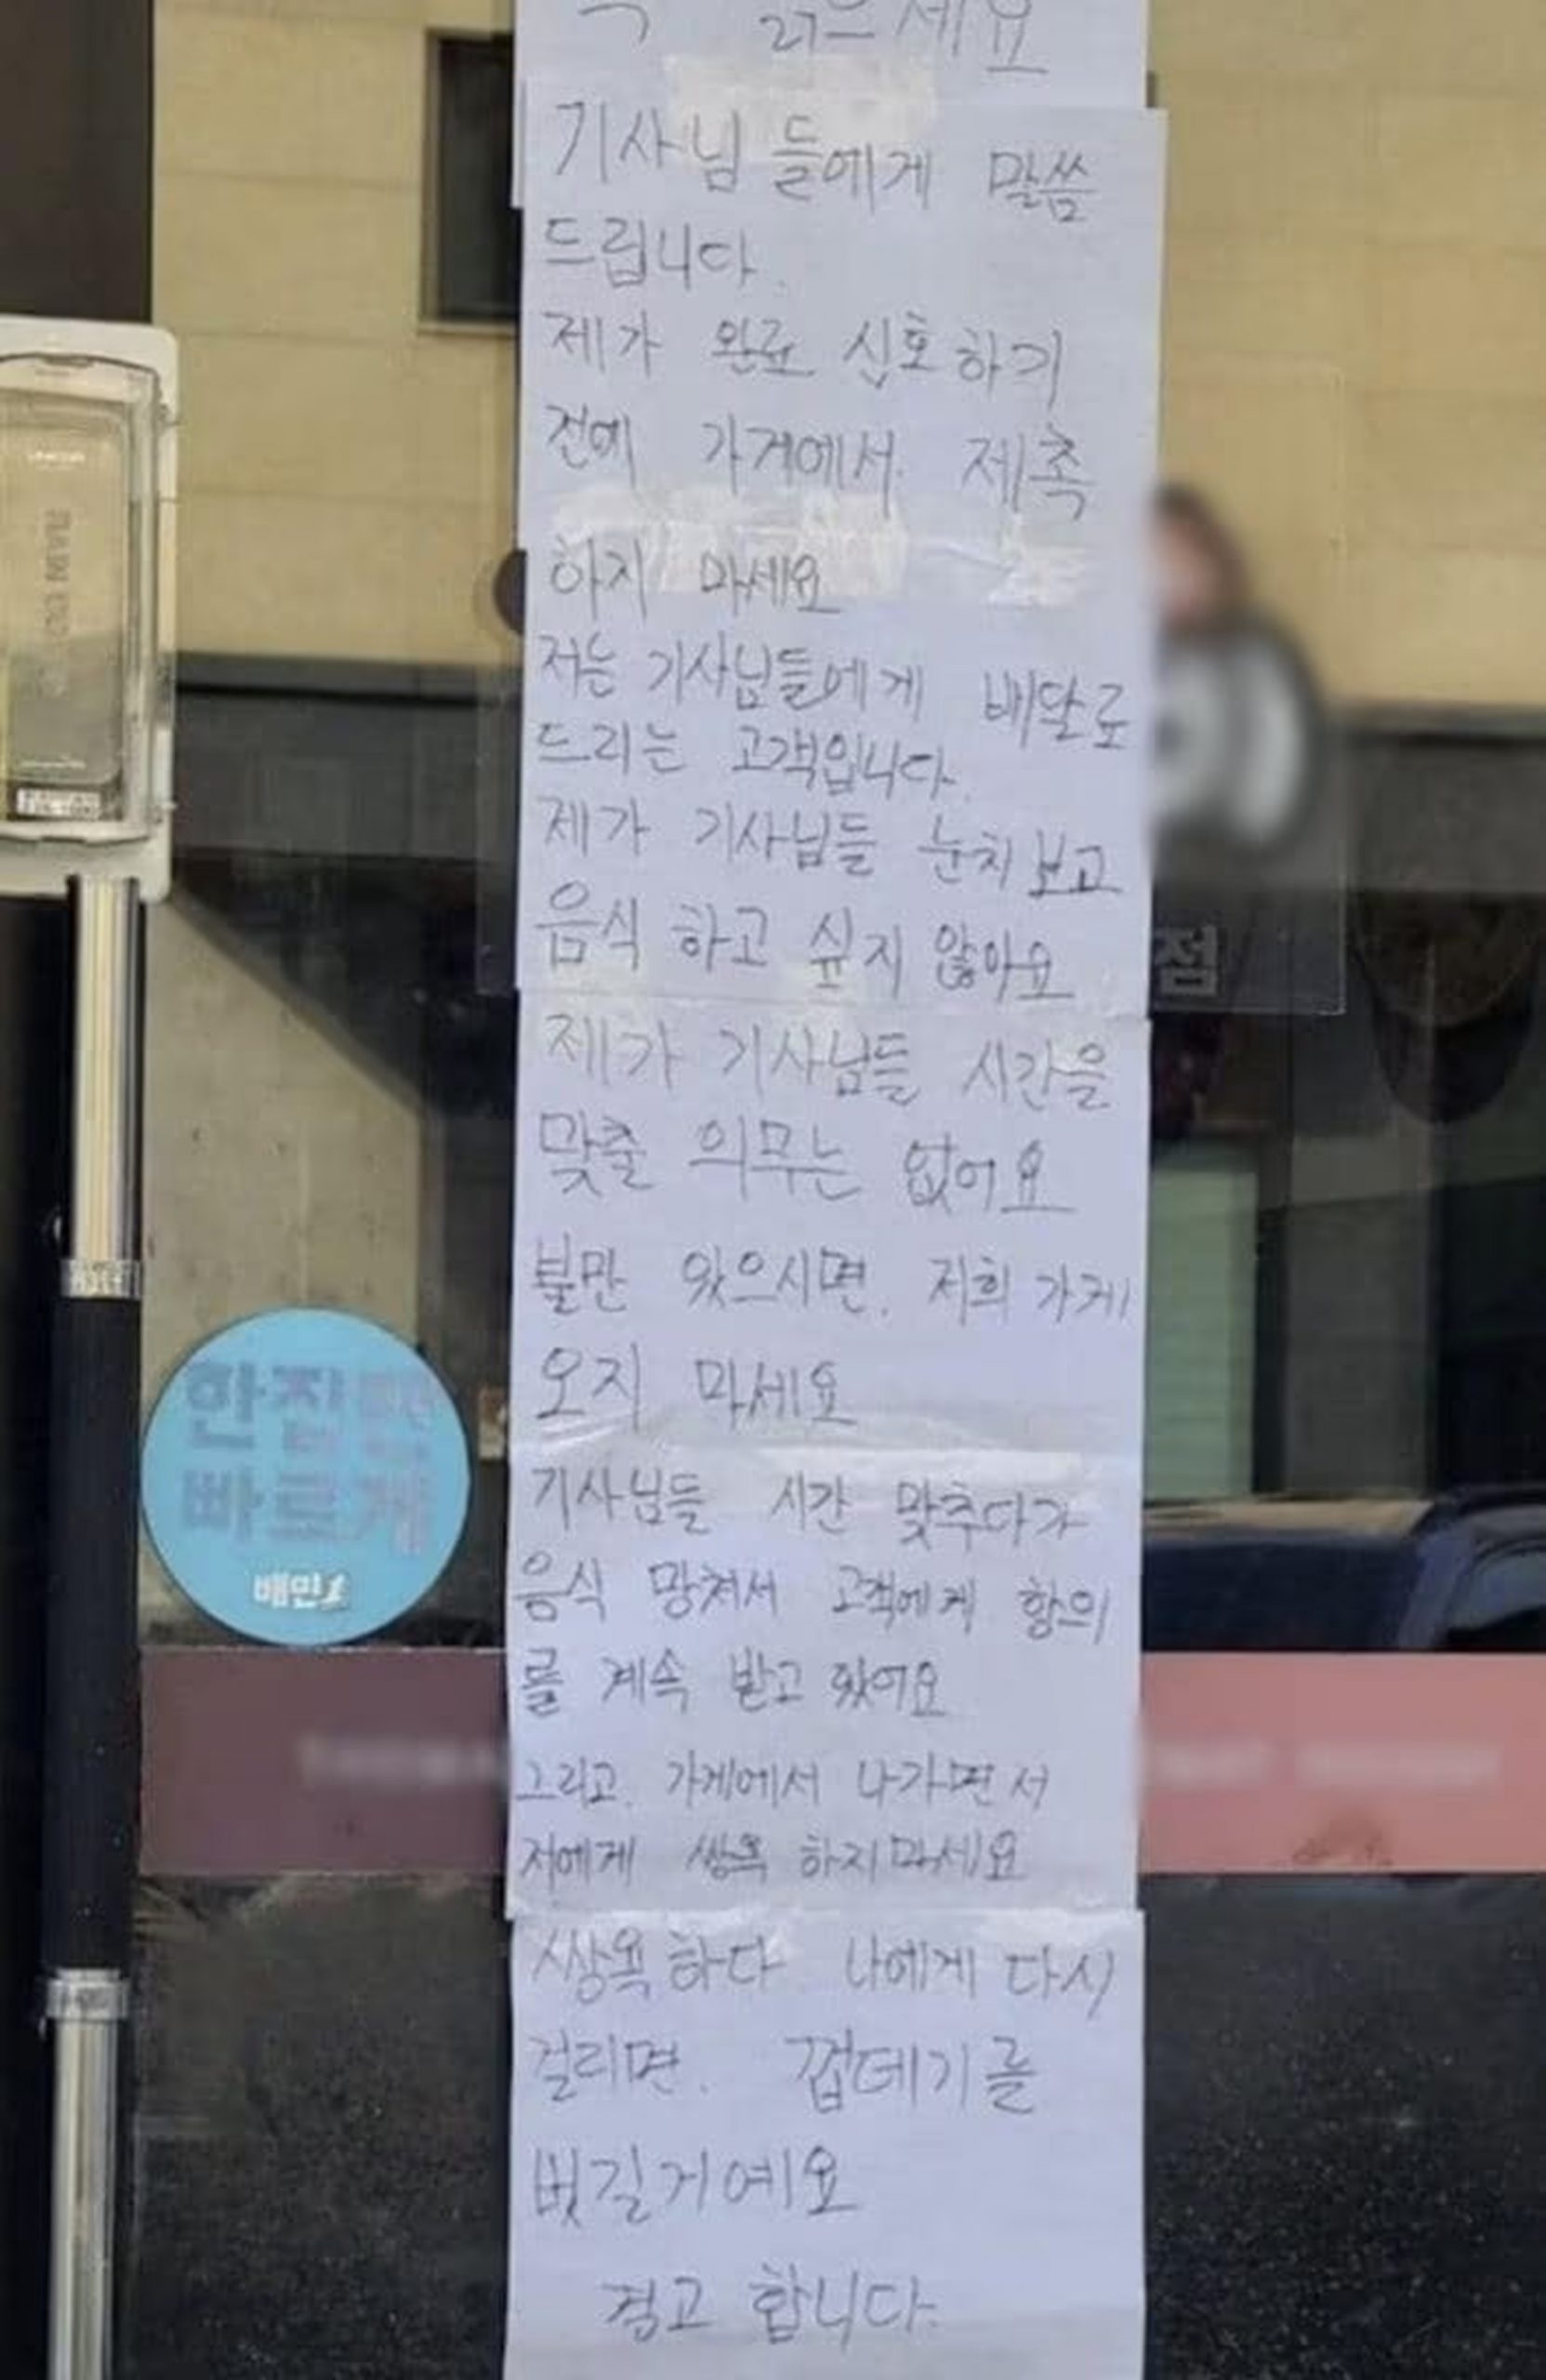 꼭 읽으세요
기사님들에게 말씀
드립니다.
제가 완료 신호하기
전에 가게에서 제촉
하지 마세요
저는 기사님들에게 배달료
드리는 고객입니다.
제가 기사님들 눈치 보고
음식 하고 싶지 않아요
제가 기사님들 시간을
맞출 의무는 없어요
불만 있으시면. 저희 가게
오지 마세요
기사님들 시간 맞추다가
음식 망쳐서 고객에게 항의
를 계속 받고 왔어요
그리고. 가게에서 나가면서
저에게 쌍욕 하지마세요
쌍욕하다 나에게 다시
걸리면. 껍데기를
벗길거예요
경고 합니다.
점
한집만
빠르게
배민1